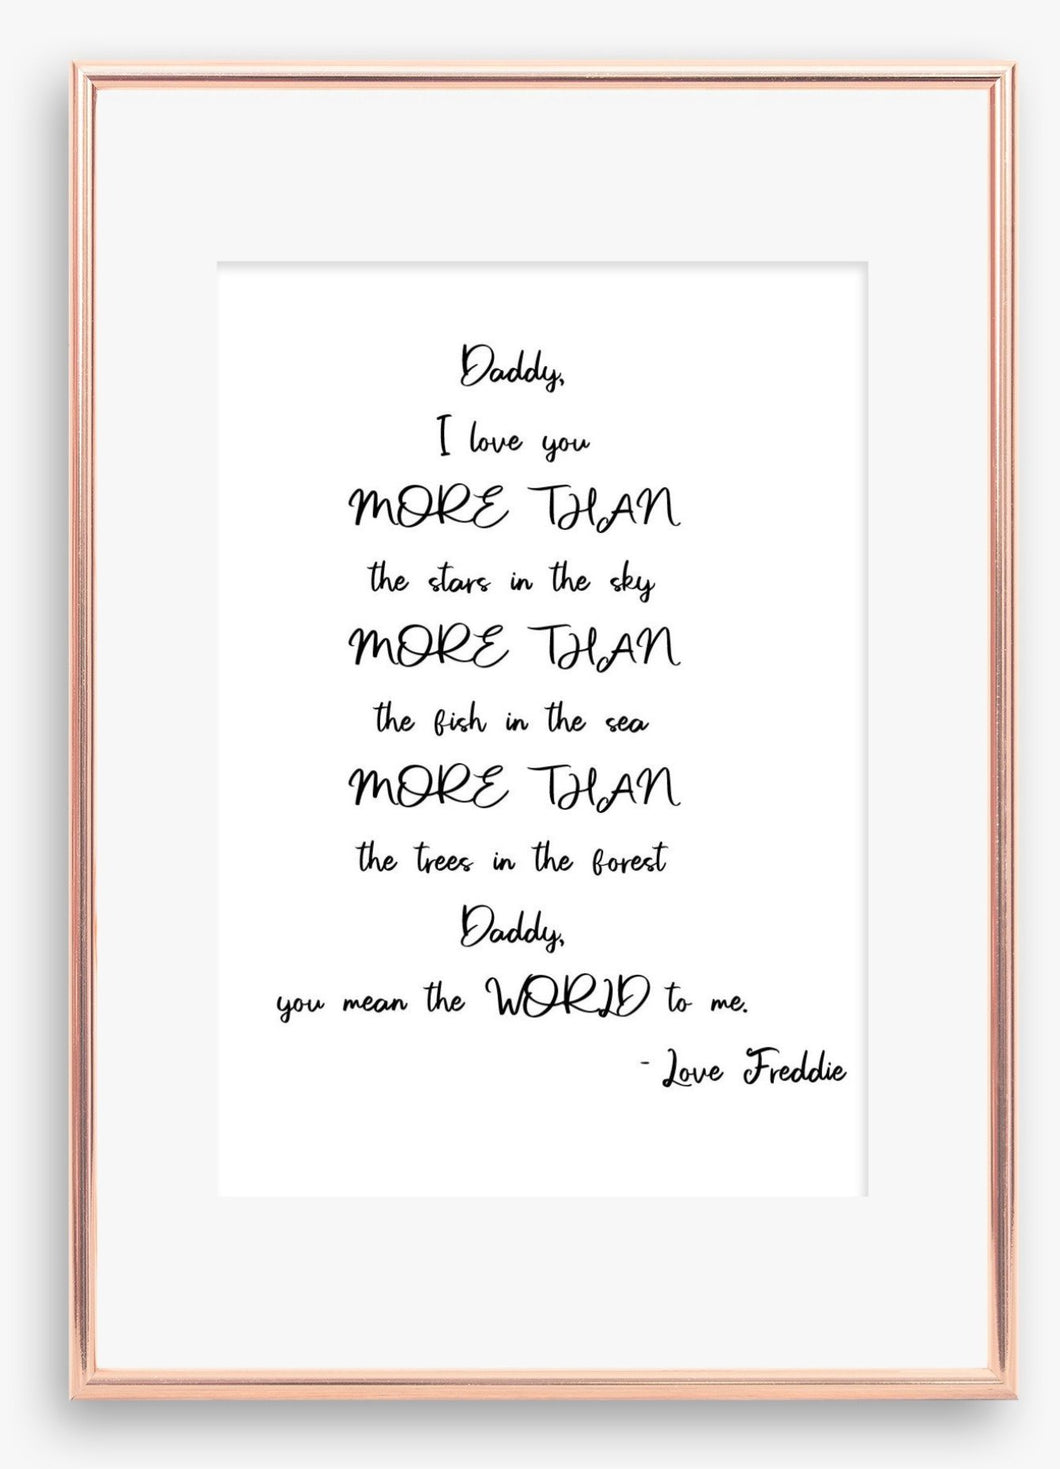 Daddy,
I love you
MORE THAN
the stars in the sky
MORE THAN
the fish in the sea
MORE THAN
the trees in the forest
Daddy,
you mean the WORLD to me.
- Love Freddie